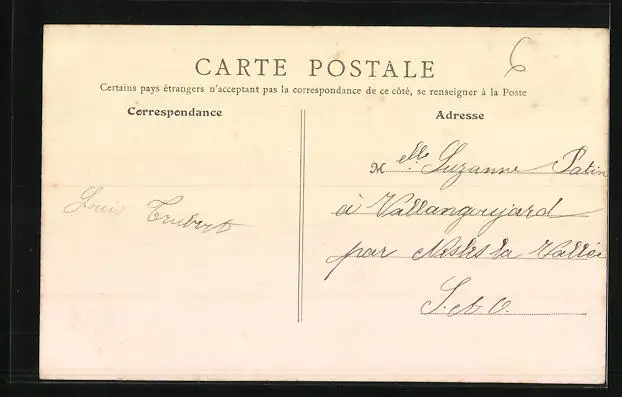 6
CARTE POSTALE
Certains pays étrangers n'acceptant pas la correspondance de ce côté, se renseigner à la Poste
Correspondance
Adresse
Louis Trubert
Melle Suzanne Patin
à Vallangoujard
par Nesles la Vallée
S. et O.